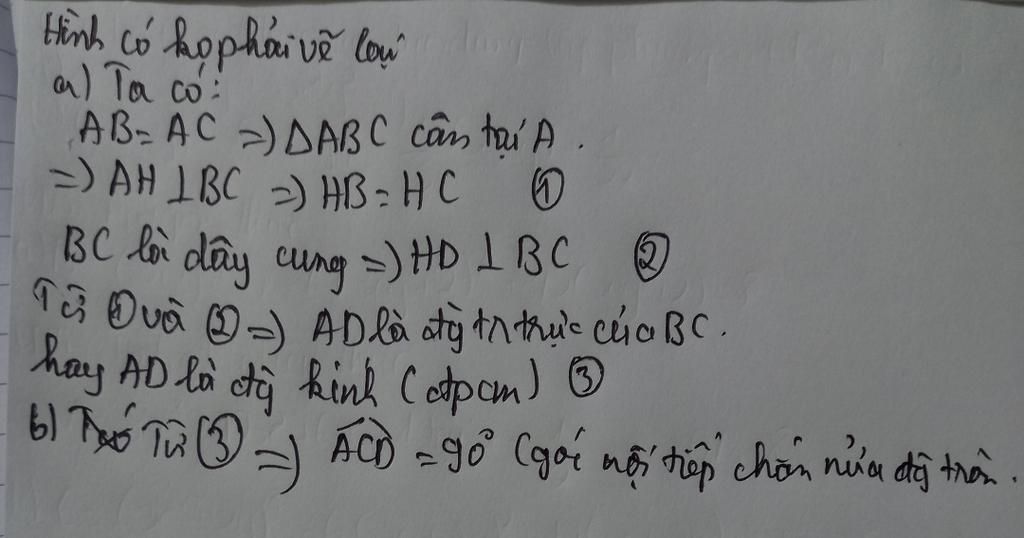 Hình có kọ phải vẽ lại
a) Ta có:
AB = AC => ΔABC cân tại A.
=> AH ⊥ BC => HB = HC ①
BC là dây cung => HD ⊥ BC ②
Từ ① và ② => AD là đg tr trực của BC.
hay AD là đg kính (đpcm) ③
b) Từ (3) => ACD = 90° (góc nội tiếp chắn nửa đg tròn.